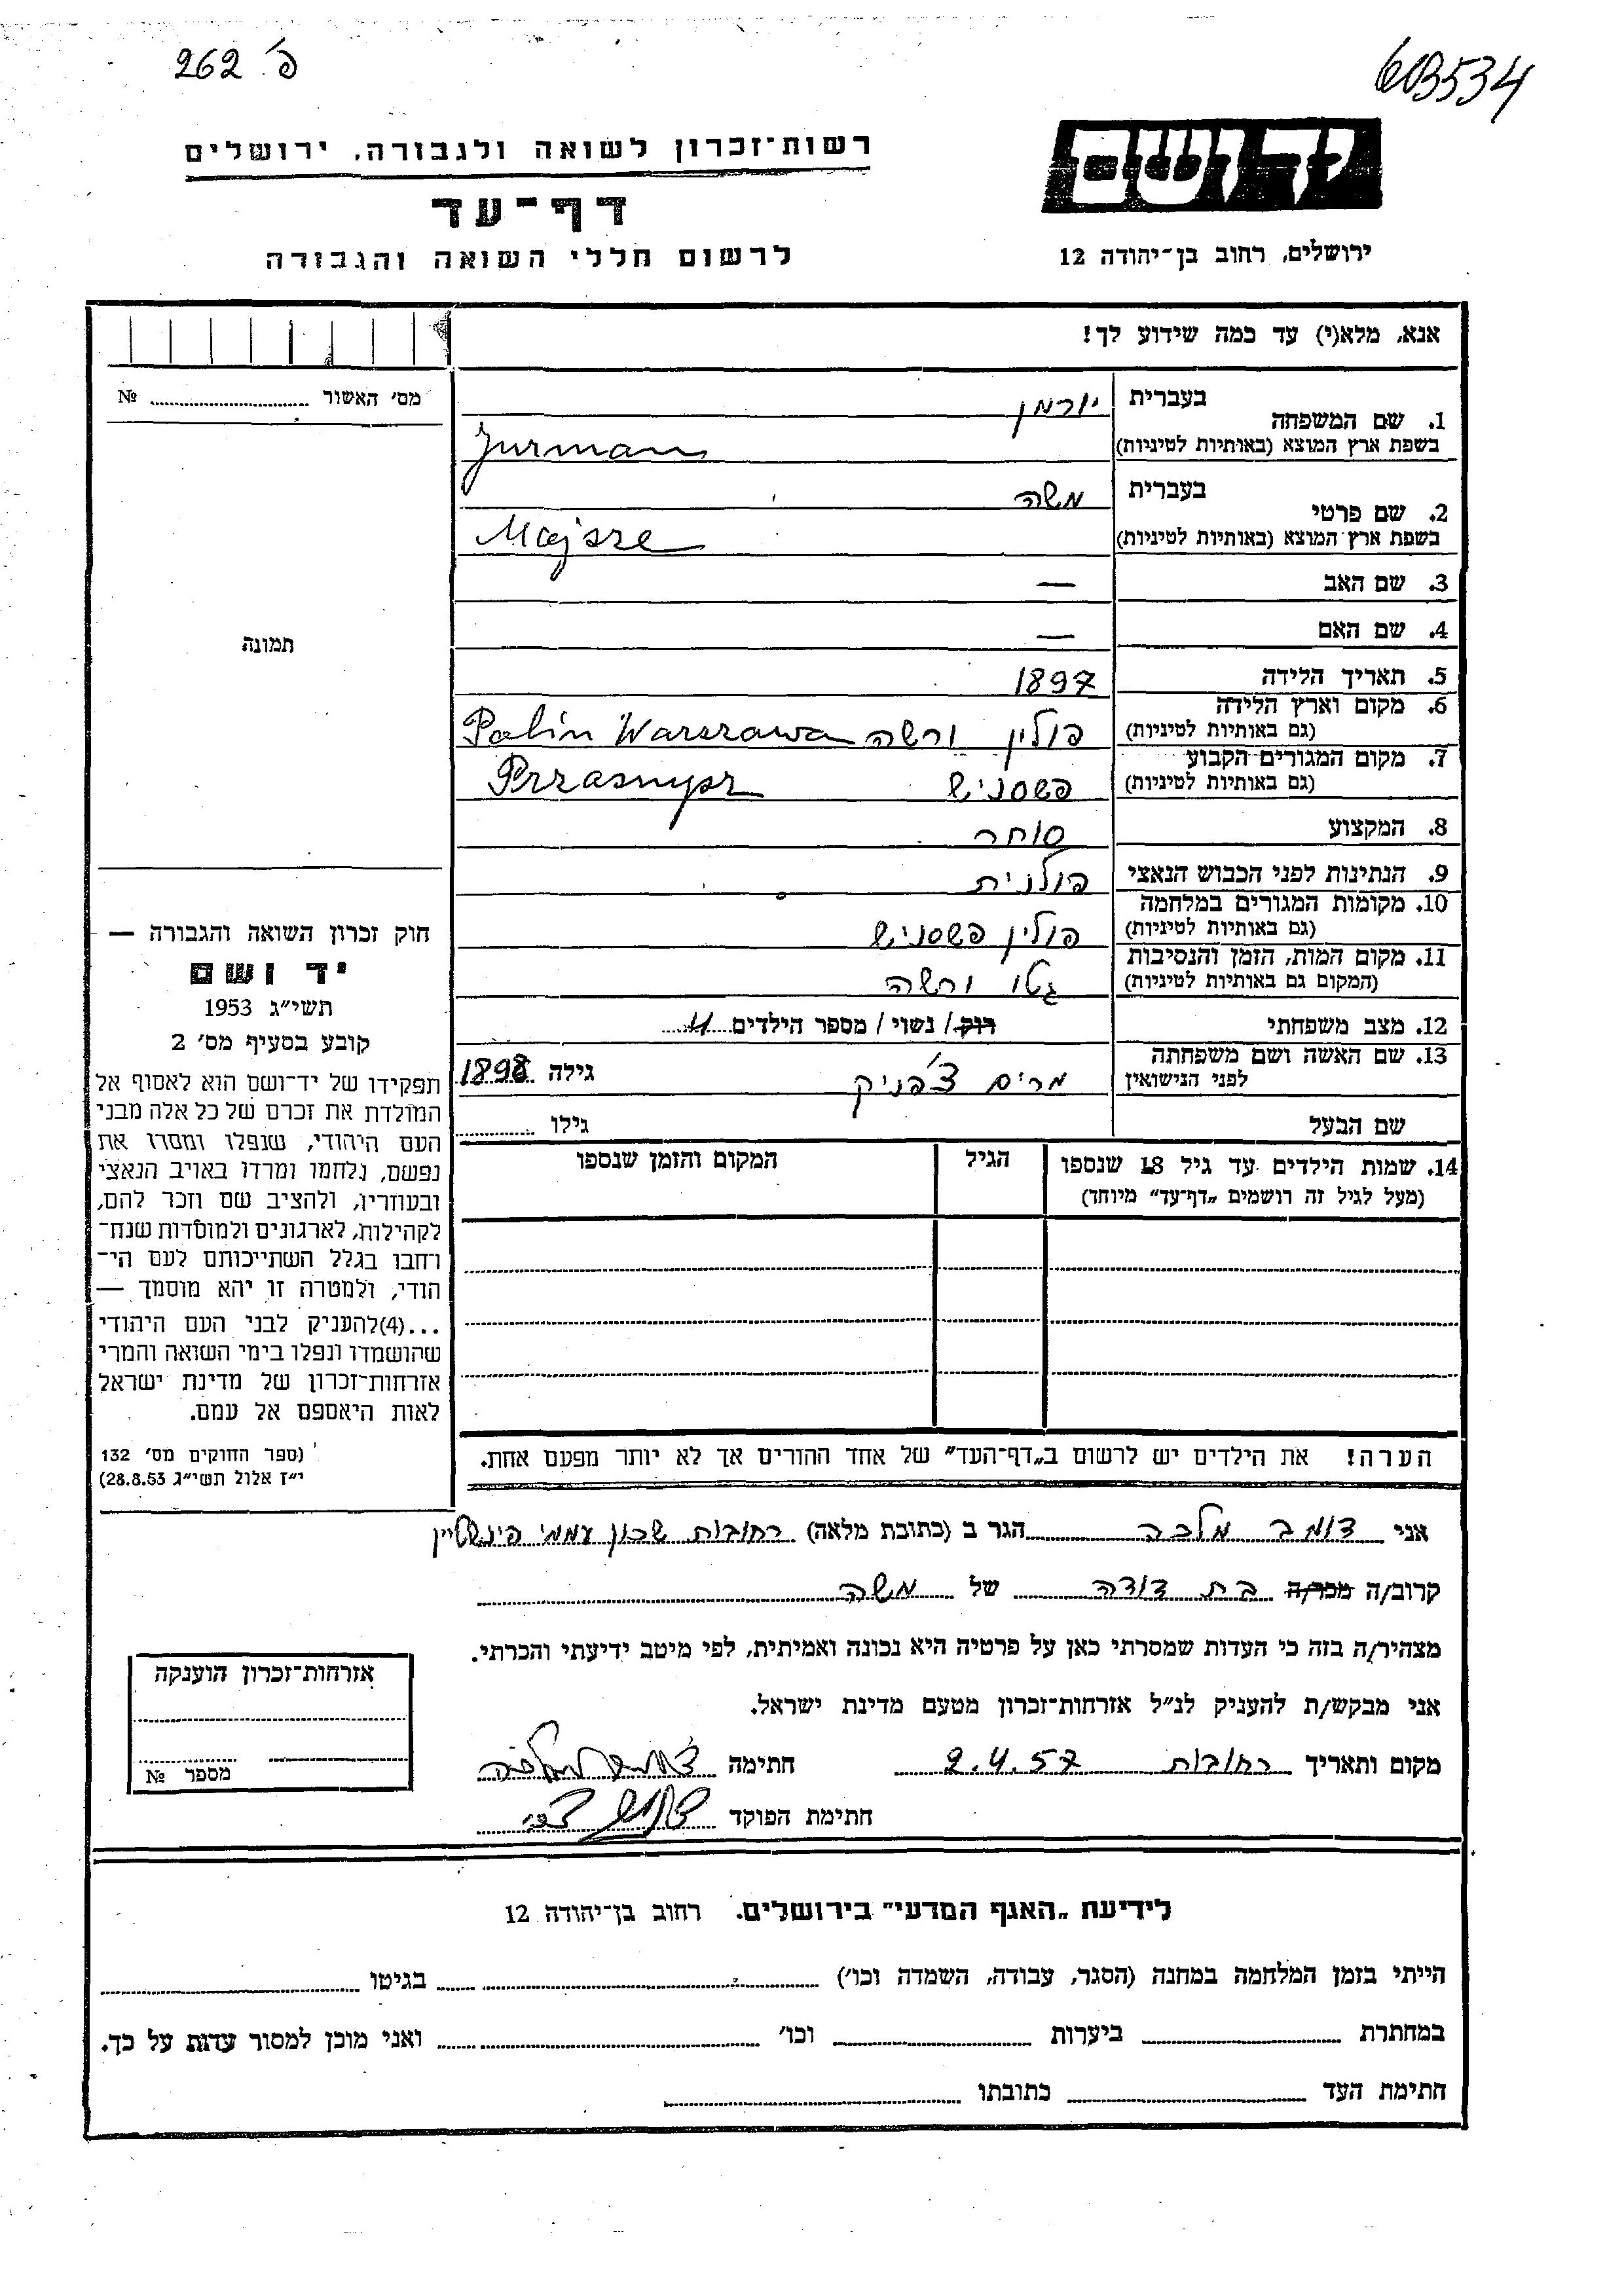 פ' 262
603534
רשות-זכרון לשואה ולגבורה, ירושלים
יד ושם
דף-עד
לרשום חללי השואה והגבורה
ירושלים, רחוב בן-יהודה 12
אנא, מלא(י) עד כמה שידוע לך!
מס' האשור № 
1. שם המשפחה בעברית יורמן
בשפת ארץ המוצא (באותיות לטיניות) Jurman
2. שם פרטי בעברית משה
בשפת ארץ המוצא (באותיות לטיניות) Majsze
3. שם האב —
4. שם האם —
5. תאריך הלידה 1897
6. מקום וארץ הלידה
(גם באותיות לטיניות) פולין ורשה Palin Warszawa
7. מקום המגורים הקבוע
(גם באותיות לטיניות) פשסניש Przasnysz
8. המקצוע סוחר
9. הנתינות לפני הכבוש הנאצי פולנית
10. מקומות המגורים במלחמה
(גם באותיות לטיניות) פולין פשסניש
11. מקום המות, הזמן והנסיבות
(המקום גם באותיות לטיניות) גטו ורשה
12. מצב משפחתי רווק / נשוי / מספר הילדים 4
13. שם האשה ושם משפחתה
לפני הנישואין מרים צ'פניק גילה 1898
שם הבעל גילו
14. שמות הילדים עד גיל 18 שנספו הגיל המקום והזמן שנספו
(מעל לגיל זה רושמים „דף-עד" מיוחד)
תמונה
חוק זכרון השואה והגבורה —
יד ושם
תשי"ג 1953
קובע בסעיף מס' 2
תפקידו של יד-ושם הוא לאסוף אל
המולדת את זכרם של כל אלה מבני
העם היהודי, שנפלו ומסרו את
נפשם, נלחמו ומרדו באויב הנאצי
ובעוזריו, ולהציב שם וזכר להם,
לקהילות, לארגונים ולמוסדות שנח-
רחבו בגלל השתייכותם לעם הי-
הודי, ולמטרה זו יהא מוסמך —
...(4) להעניק לבני העם היהודי
שהושמדו ונפלו בימי השואה והמרי
אזרחות-זכרון של מדינת ישראל
לאות היאספם אל עמם.
(ספר החוקים מס' 132
י"ז אלול תשי"ג 28.8.53)
הערה! את הילדים יש לרשום ב„דף-העד" של אחד ההורים אך לא יותר מפעם אחת.
אני דומב מלכה הגר ב (כתובת מלאה) רחובות שכון עממי פינשטיין
קרוב/ה מכר/ה בת דודה של משה
מצהיר/ה בזה כי העדות שמסרתי כאן על פרטיה היא נכונה ואמיתית, לפי מיטב ידיעתי והכרתי.
אני מבקש/ת להעניק לנ"ל אזרחות-זכרון מטעם מדינת ישראל.
מקום ותאריך רחובות 2.4.57 חתימה דומב מלכה
חתימת הפוקד
אזרחות-זכרון הוענקה
מספר №
לידיעת „האגף המדעי" בירושלים. רחוב בן-יהודה 12
הייתי בזמן המלחמה במחנה (הסגר, עבודה, השמדה וכו') בגיטו
במחתרת ביערות וכו' ואני מוכן למסור עדות על כך.
חתימת העד כתובתו